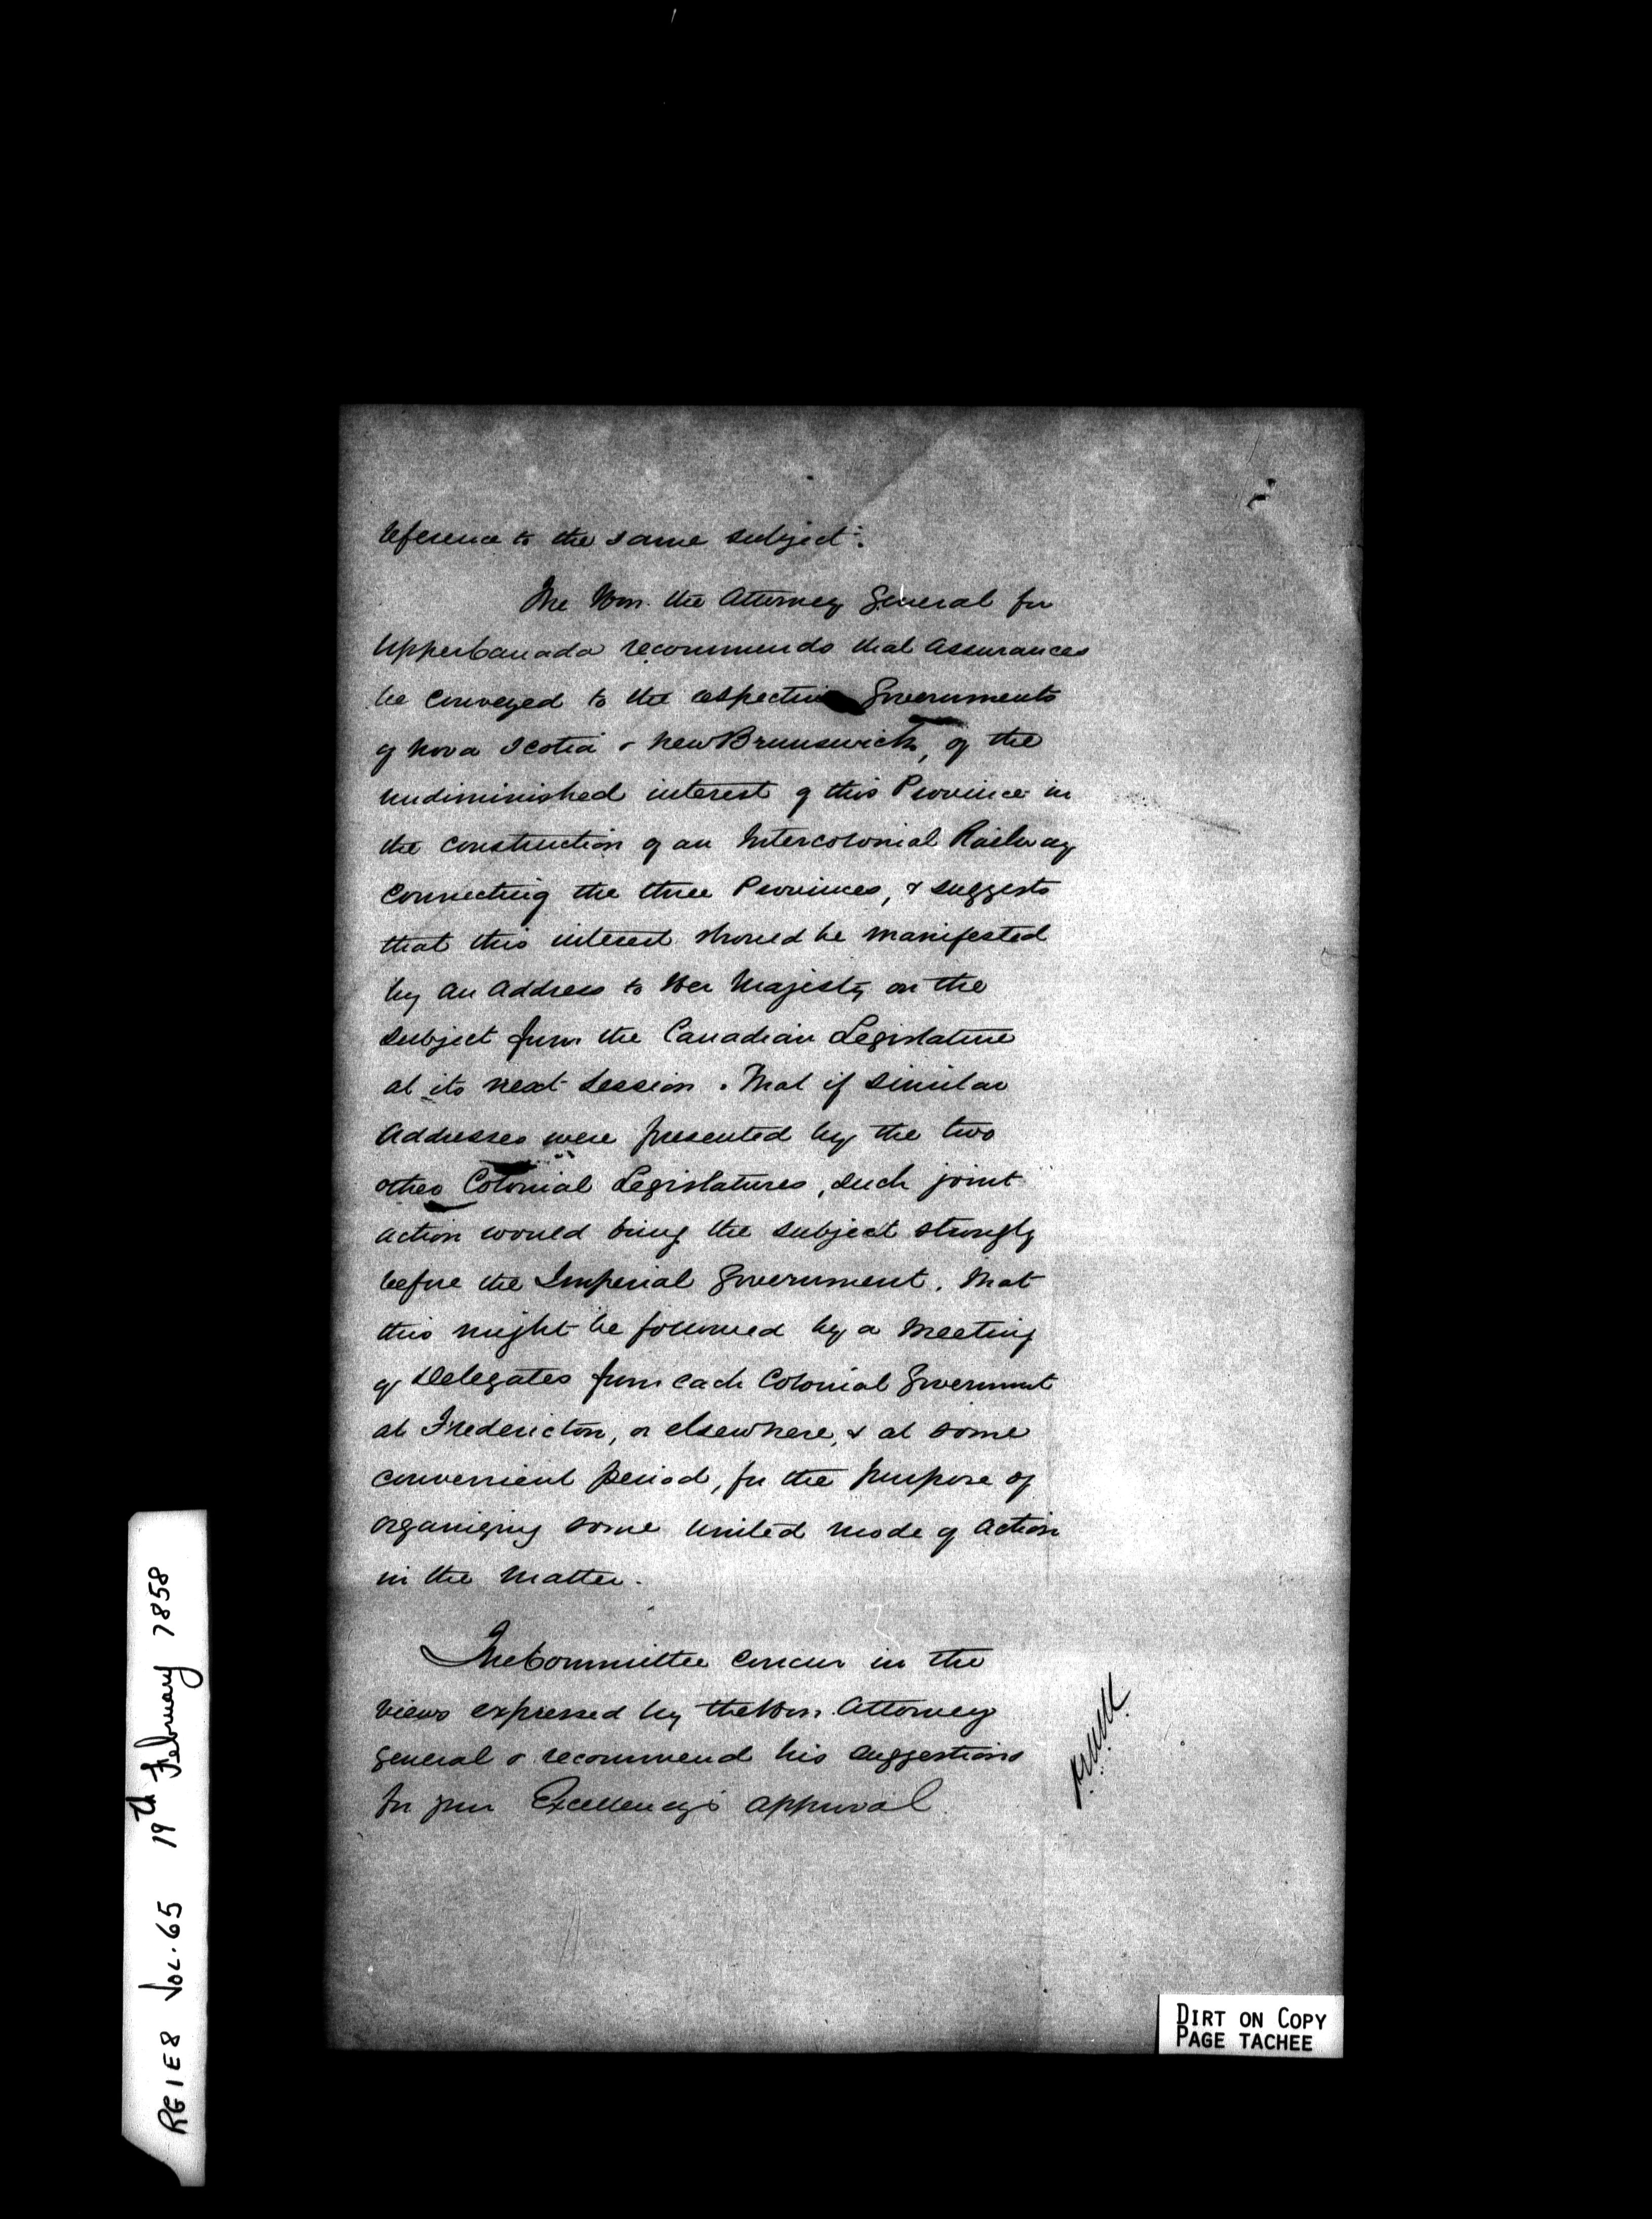 reference to the same subject.
The Hon. the Attorney General for
Upper Canada recommends that assurances
be conveyed to the respective Governments
of Nova Scotia & New Brunswick, of the
undiminished interest of this Province in
the construction of an Intercolonial Railway
connecting the three Provinces, & suggests
that this interest should be manifested
by an Address to Her Majesty on the
subject from the Canadian Legislature
at its next Session. That if similar
Addresses were presented by the two
other Colonial Legislatures, such joint
action would bring the subject strongly
before the Imperial Government. That
this might be followed by a Meeting
of Delegates from each Colonial Government
at Fredericton, or elsewhere, & at some
convenient period, for the purpose of
organizing some united mode of action
in the matter.
The Committee concur in the
views expressed by the Hon. Attorney
General & recommend his suggestions
for your Excellency's approval.
RG 1 E 8 VOL. 65 19th February 1858
DIRT ON COPY
PAGE TACHEE